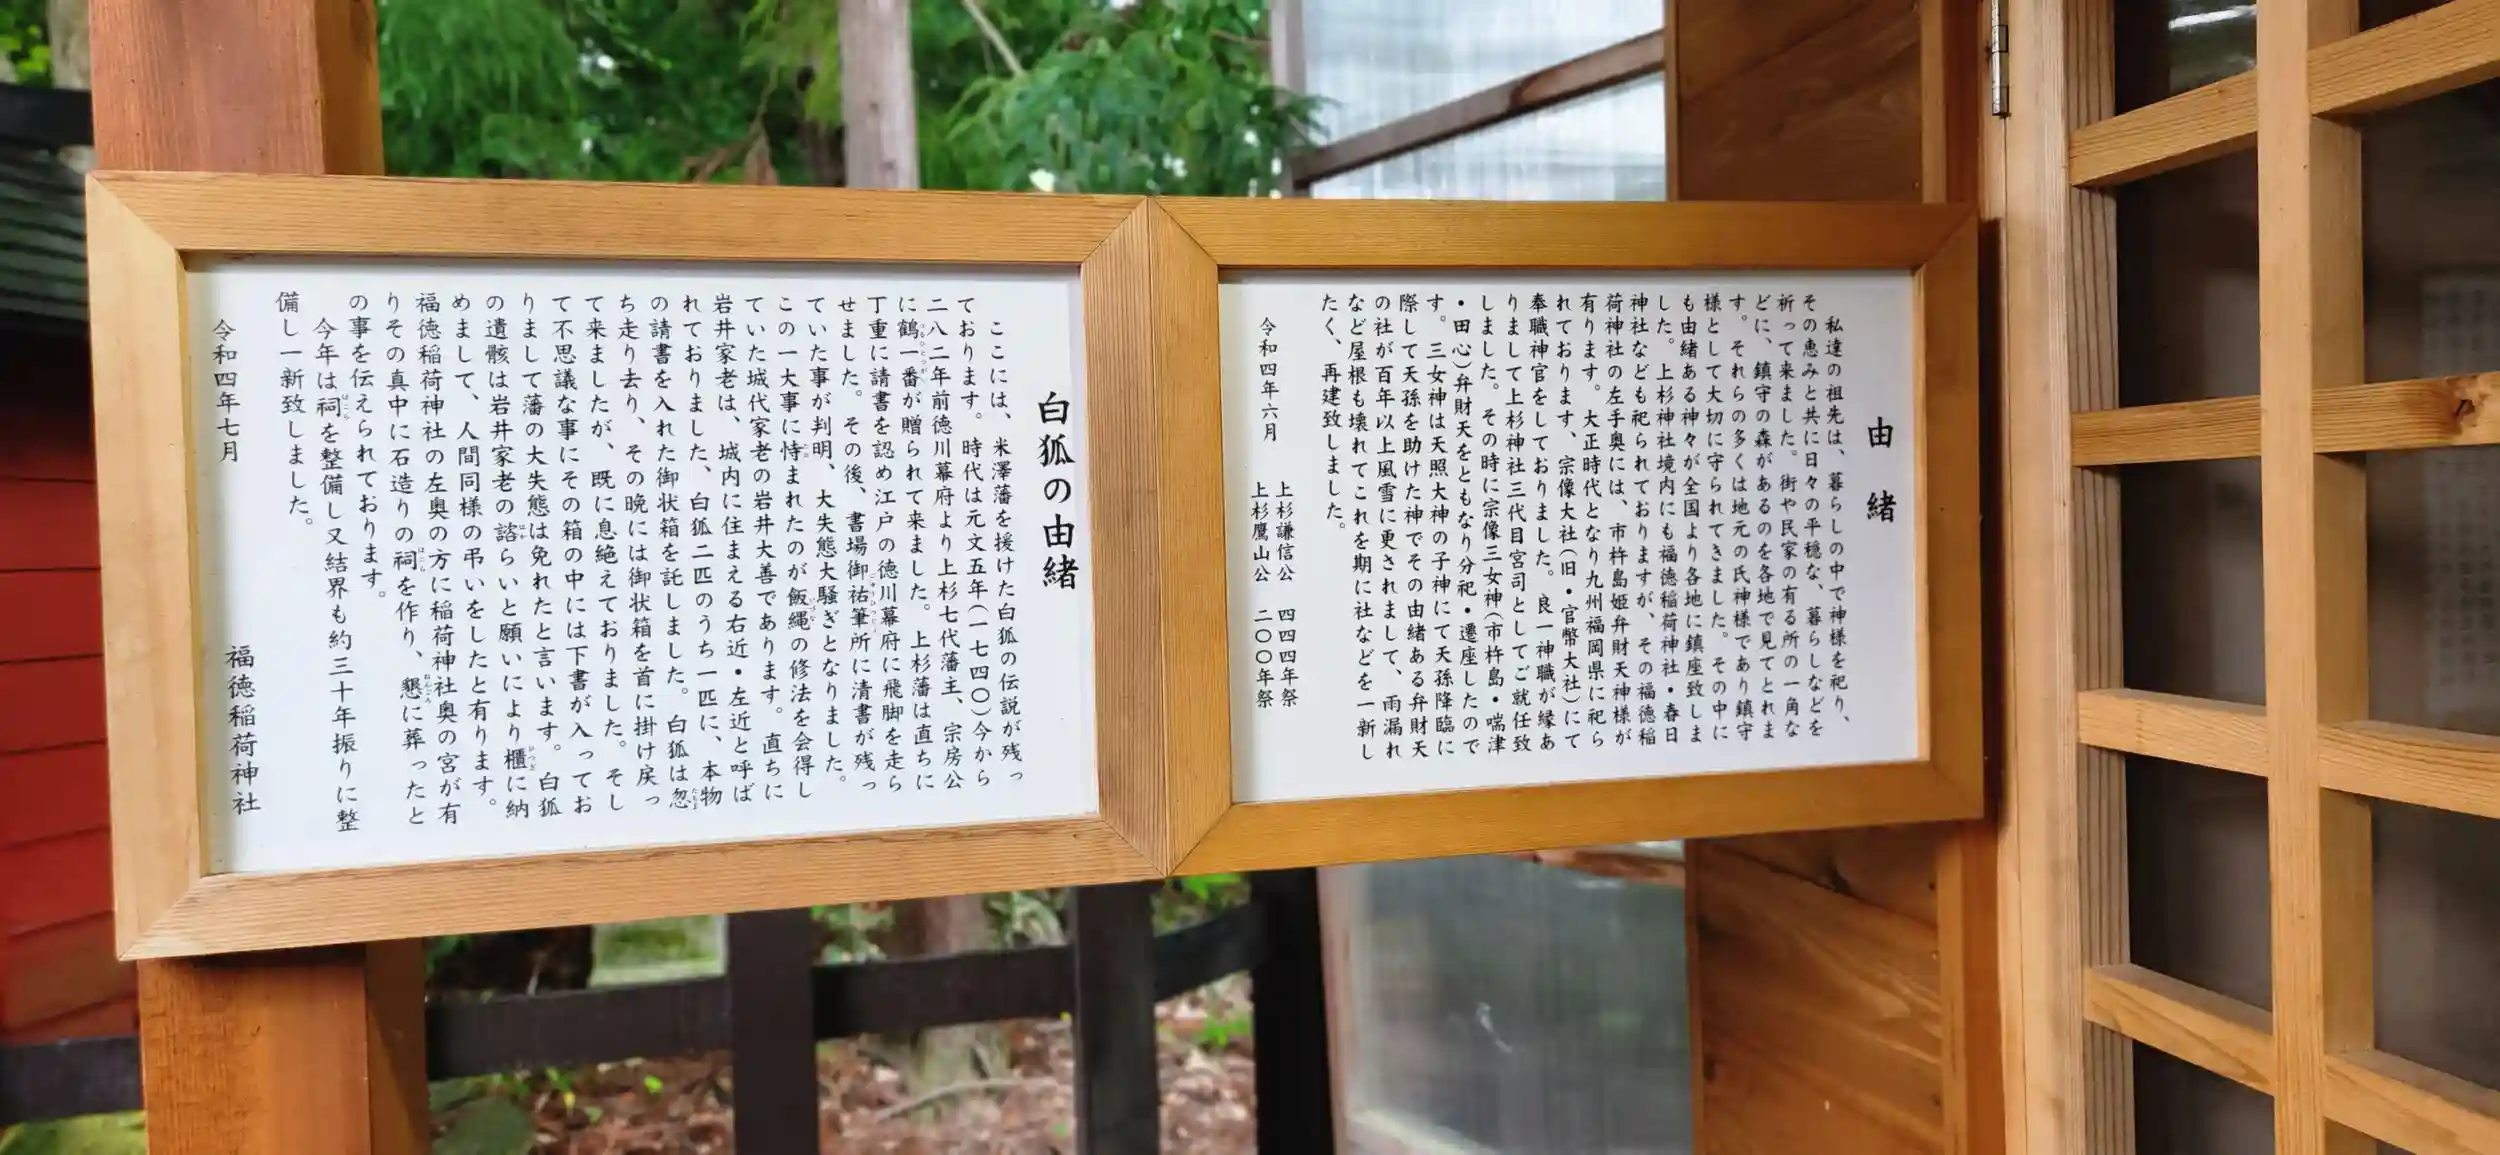 由緒
私達の祖先は、暮らしの中で神様を祀り、
その恵みと共に日々の平穏な、暮らしなどを
祈って来ました。街や民家の有る所の一角な
どに、鎮守の森があるのを各地で見てとれま
す。それらの多くは地元の氏神様であり鎮守
様として大切に守られてきました。その中に
も由緒ある神々が全国より各地に鎮座致しま
した。上杉神社境内にも福徳稲荷神社・春日
神社なども祀られておりますが、その福徳稲
荷神社の左手奥には、市杵島姫弁財天神様が
有ります。大正時代となり九州福岡県に祀ら
れております、宗像大社(旧・官幣大社)にて
奉職神官をしておりました。良一神職が縁あ
りまして上杉神社三代目宮司としてご就任致
しました。その時に宗像三女神(市杵島・喘津
・田心)弁財天をともなり分祀・遷座したので
す。三女神は天照大神の子神にて天孫降臨に
際して天孫を助けた神でその由緒ある弁財天
の社が百年以上風雪に更されまして、雨漏れ
など屋根も壊れてこれを期に社などを一新し
たく、再建致しました。
上杉謙信公 四四四年祭
令和四年六月 上杉鷹山公 二〇〇年祭
白狐の由緒
ここには、米澤藩を援けた白狐の伝説が残っ
ております。時代は元文五年(一七四〇)今から
二八二年前徳川幕府より上杉七代藩主、宗房公
に鶴一番が贈られて来ました。上杉藩は直ちに
丁重に請書を認め江戸の徳川幕府に飛脚を走ら
せました。その後、書場御祐筆所に清書が残っ
ていた事が判明、大失態大騒ぎとなりました。
この一大事に恃まれたのが飯縄の修法を会得し
ていた城代家老の岩井大善であります。直ちに
岩井家老は、城内に住まえる右近・左近と呼ば
れておりました、白狐二匹のうち一匹に、本物
の請書を入れた御状箱を託しました。白狐は忽
ち走り去り、その晩には御状箱を首に掛け戻っ
て来ましたが、既に息絶えておりました。そし
て不思議な事にその箱の中には下書が入ってお
りまして藩の大失態は免れたと言います。白狐
の遺骸は岩井家老の諮らいと願いにより櫃に納
めまして、人間同様の弔いをしたと有ります。
福徳稲荷神社の左奥の方に稲荷神社奥の宮が有
りその真中に石造りの祠を作り、懇に葬ったと
の事を伝えられております。
今年は祠を整備し又結界も約三十年振りに整
備し一新致しました。
令和四年七月 福徳稲荷神社